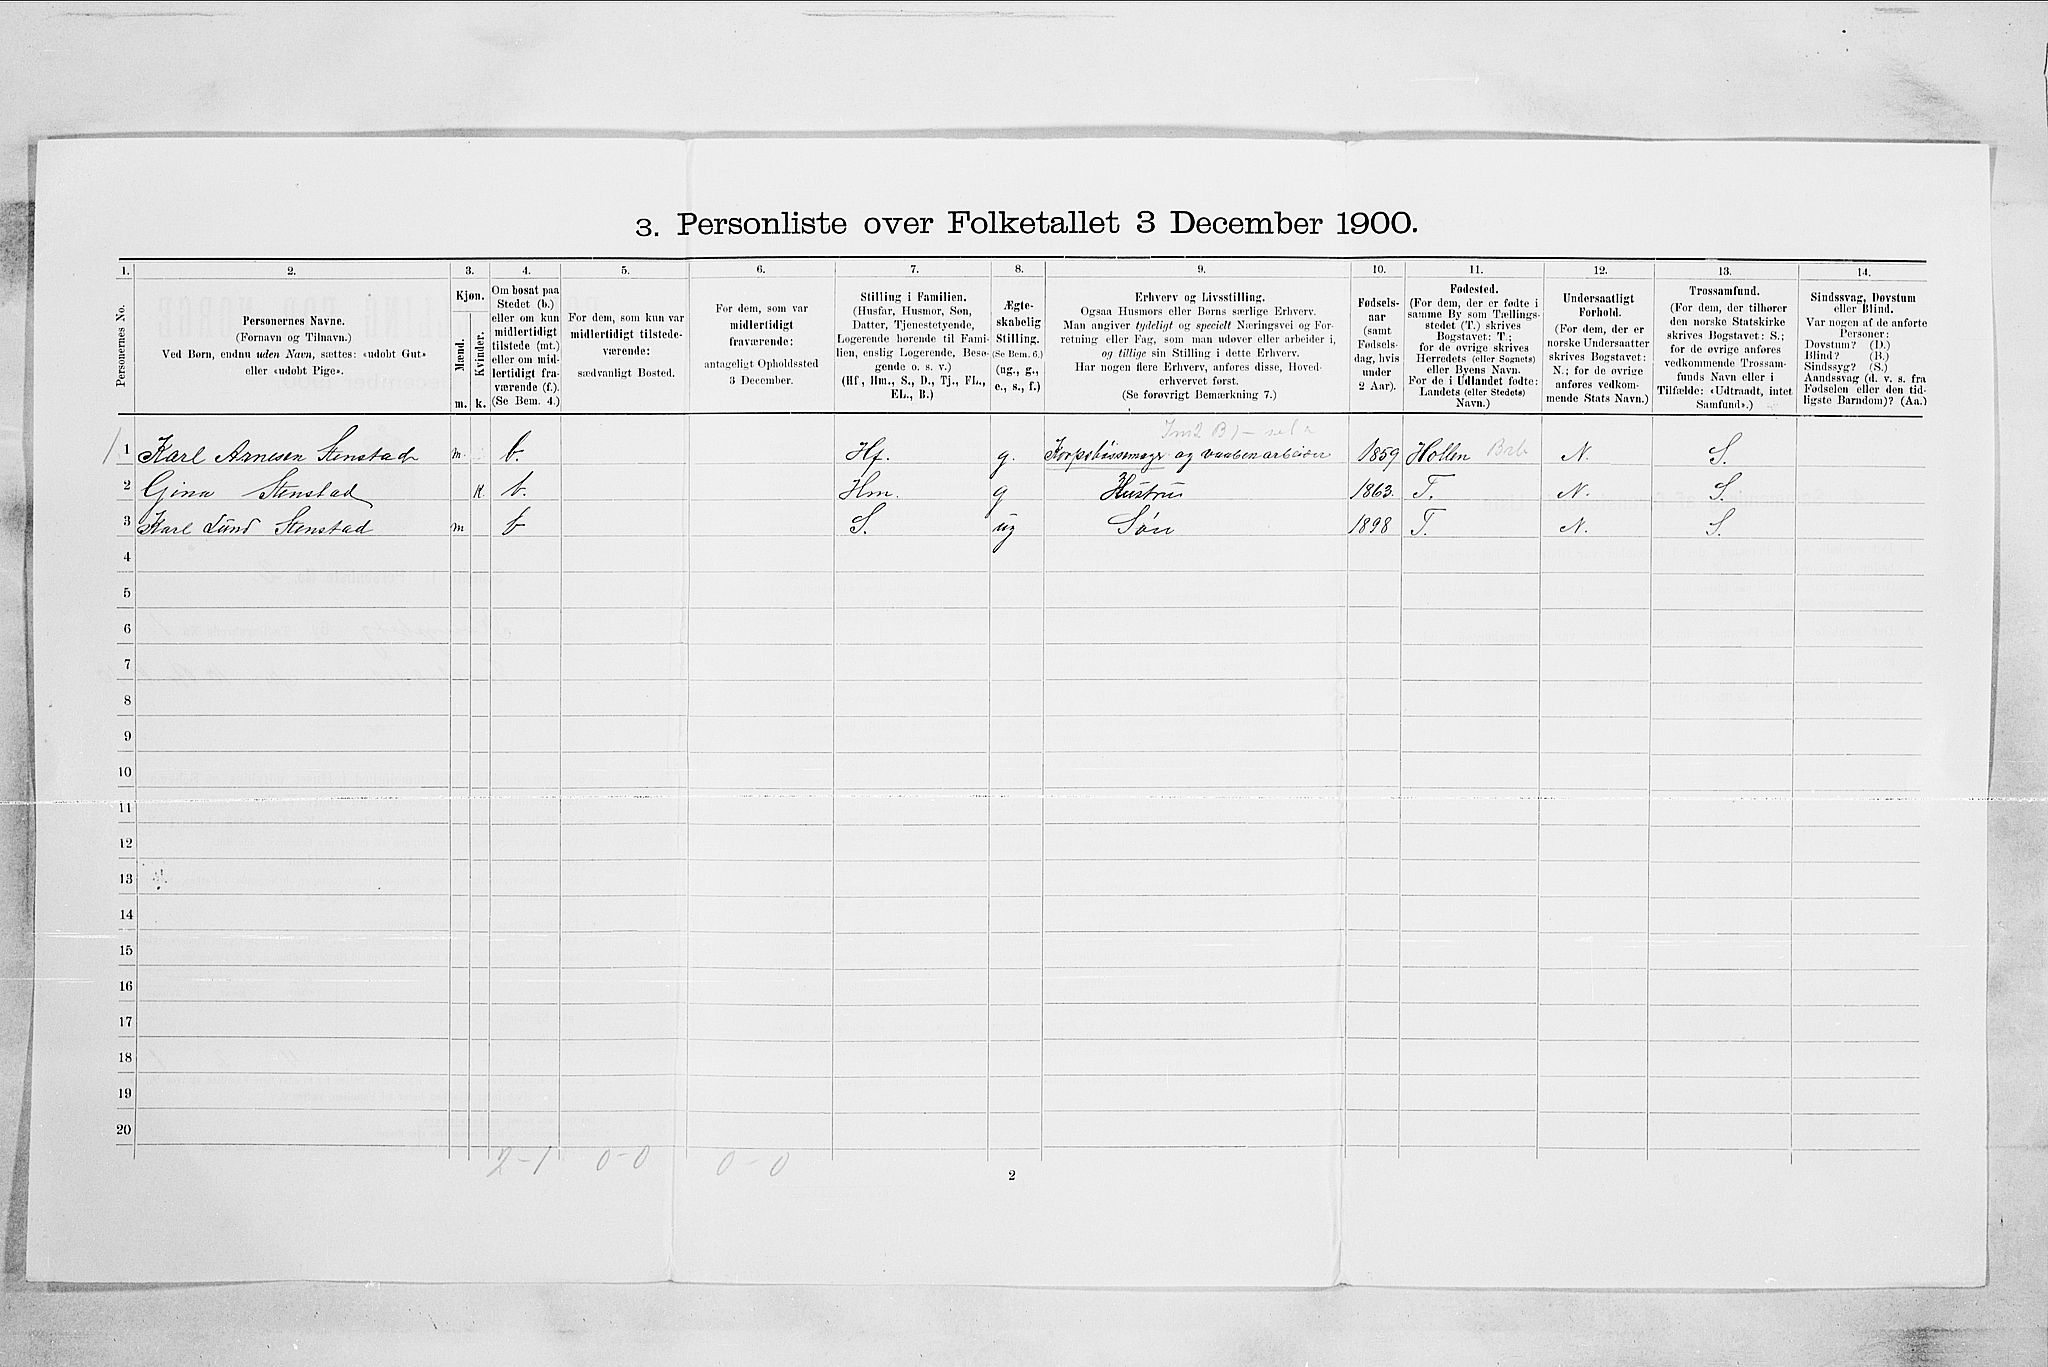 3. Personliste over Folketallet 3 December 1900.
1. 2. 3. 4. 5. 6. 7. 8. 9. 10. 11. 12. 13. 14.
Personernes No.
Personernes Navne.
(Fornavn og Tilnavn.)
Ved Børn, endnu uden Navn, sættes: «udøbt Gut»
eller «udøbt Pige».
Kjøn.
Mænd.
Kvinder.
m. k.
Om bosat paa
Stedet (b.)
eller om kun
midlertidigt
tilstede (mt.)
eller om mid-
lertidigt fra-
værende (f.).
(Se Bem. 4.)
For dem, som kun var
midlertidigt tilstede-
værende:
sædvanligt Bosted.
For dem, som var
midlertidigt
fraværende:
antageligt Opholdssted
3 December.
Stilling i Familien.
(Husfar, Husmor, Søn,
Datter, Tjenestetyende,
Logerende hørende til Fami-
lien, enslig Logerende, Besø-
gende o. s. v.)
(Hf, Hm., S., D., Tj., FL.,
EL., B.)
Ægte-
skabelig
Stilling.
(Se Bem. 6.)
(ug., g.,
e., s., f.)
Erhverv og Livsstilling.
Ogsaa Husmors eller Børns særlige Erhverv.
Man angiver tydeligt og specielt Næringsvei og For-
retning eller Fag, som man udøver eller arbeider i,
og tillige sin Stilling i dette Erhverv.
Har nogen flere Erhverv, anføres disse, Hoved-
erhvervet først.
(Se forøvrigt Bemærkning 7.)
Fødsels-
aar
(samt
Fødsels-
dag, hvis
under
2 Aar).
Fødested.
(For dem, der er fødte i
samme By som Tællings-
stedet (T.) skrives
Bogstavet: T.;
for de øvrige skrives
Herredets (eller Sognets)
eller Byens Navn.
For de i Udlandet fødte:
Landets (eller Stedets)
Navn.)
Undersaatligt
Forhold.
(For dem, der er
norske Undersaatter
skrives Bogstavet:
N.; for de øvrige
anføres vedkom-
mende Stats Navn.)
Trossamfund.
(For dem, der tilhører
den norske Statskirke
skrives Bogstavet: S.;
for de øvrige anføres
vedkommende Trossam-
funds Navn eller i
Tilfælde: «Udtraadt, intet
Samfund».)
Sindssvag, Døvstum
eller Blind.
Var nogen af de anførte
Personer:
Døvstum? (D.)
Blind? (B.)
Sindssyg? (S.)
Aandssvag (d. v. s. fra
Fødselen eller den tid-
ligste Barndom)? (Aa.)
1 Karl Arnesen Stenstad m. b. Hf. g. Korpsbøssemager og vaabenarbeider 1859 Hollen N. S.
2 Gina Stenstad k. b. Hm. g Hustru 1863. T. N. S.
3 Karl Lund Stenstad m b S. ug Søn 1898 T. N. S.
4
5
6
7
8
9
10
11
12
13
14
15
16
17
18
19
20
2-1 0-0 0-0
2